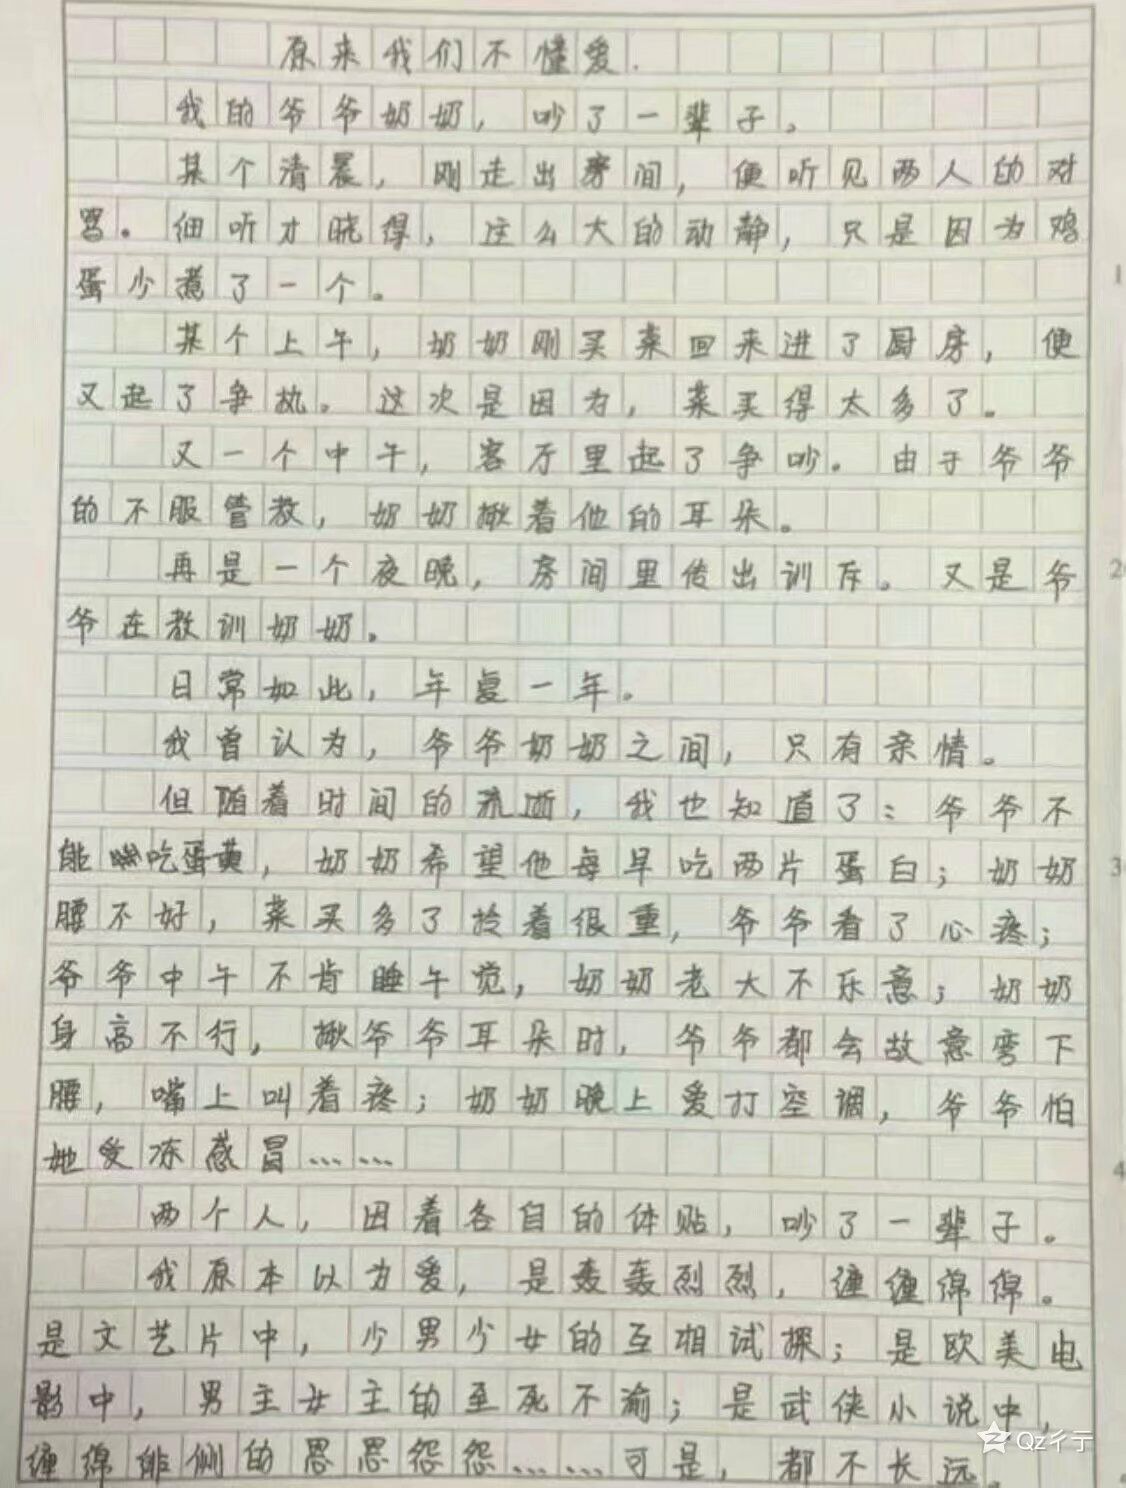 原来我们不懂爱.
我的爷爷奶奶，吵了一辈子。
某个清晨，刚走出房间，便听见两人的对
骂。细听才晓得，这么大的动静，只是因为鸡
蛋少煮了一个。
某个上午，奶奶刚买菜回来进了厨房，便
又起了争执。这次是因为，菜买得太多了。
又一个中午，客厅里起了争吵。由于爷爷
的不服管教，奶奶揪着他的耳朵。
再是一个夜晚，房间里传出训斥。又是爷
爷在教训奶奶。
日常如此，年复一年。
我曾认为，爷爷奶奶之间，只有亲情。
但随着时间的流逝，我也知道了：爷爷不
能吃蛋黄，奶奶希望他每早吃两片蛋白；奶奶
腰不好，菜买多了拎着很重，爷爷看了心疼；
爷爷中午不肯睡午觉，奶奶老大不乐意；奶奶
身高不行，揪爷爷耳朵时，爷爷都会故意弯下
腰，嘴上叫着疼；奶奶晚上爱打空调，爷爷怕
她受冻感冒……
两个人，因着各自的体贴，吵了一辈子。
我原本以为爱，是轰轰烈烈，缠缠绵绵。
是文艺片中，少男少女的互相试探；是欧美电
影中，男主女主的至死不渝；是武侠小说中，
缠绵俳侧的恩恩怨怨……可是，都不长远。
Qz彳亍